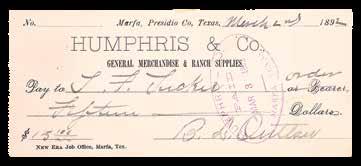 No. Marfa, Presidio Co, Texas, March 2nd 1892
HUMPHRIS & Co.
GENERAL MERCHANDISE & RANCH SUPPLIES
Pay to order
or Bearer,
Fifteen Dollars.
$ 15
NEW ERA Job Office, Marfa, Tex.